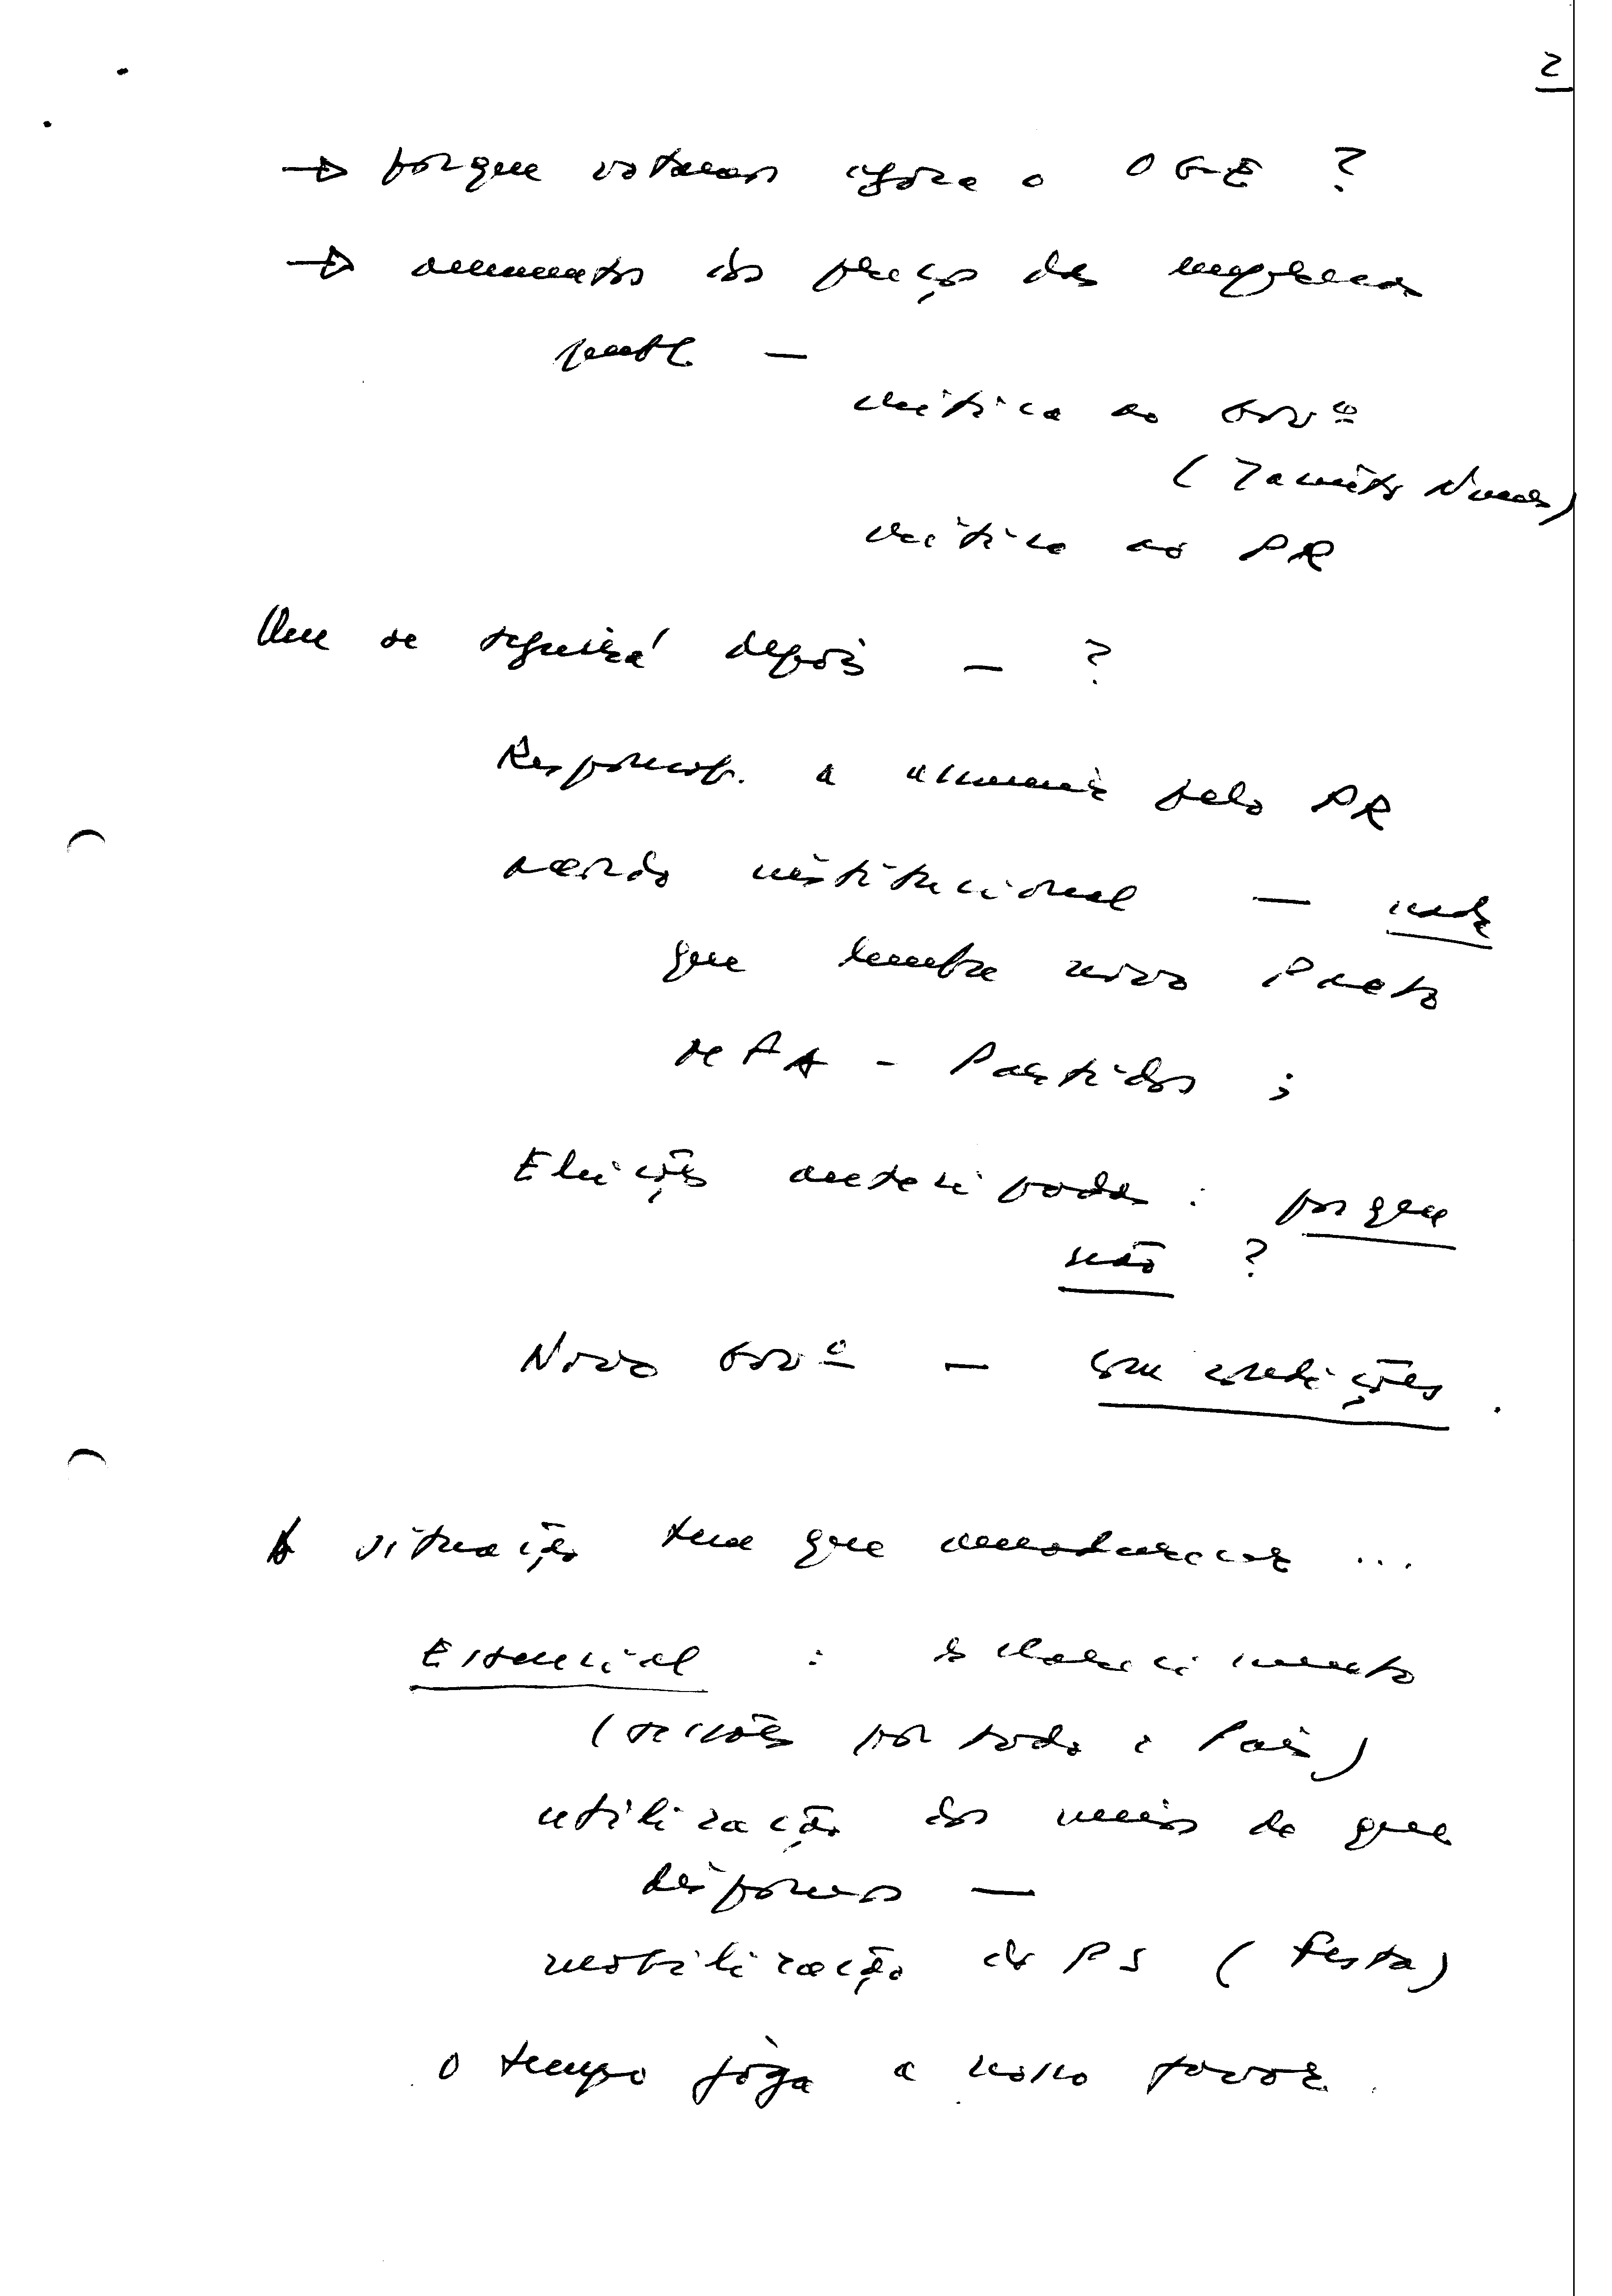 2
→ porque votamos agora o OGE ?
→ aumentos dos preços das empresas
publ. —
crítica ao Govº
(Jacinto Nunes)
crítica ao PR
Que se seguirá depois — ?
Responsab. a assumir pelo PR
acordo institucional — nada
que lembre novo Pacto
MFA - Partidos ;
Eleições antecipadas : porque
não ?
Novo Govº — com condições .
A situação tem que amadurecer ...
Essencial : esclarecimento
(sessões por todo o País)
utilização dos meios de que
dispomos —
mobilização do PS ( Festa )
o tempo jóga a nosso favor.